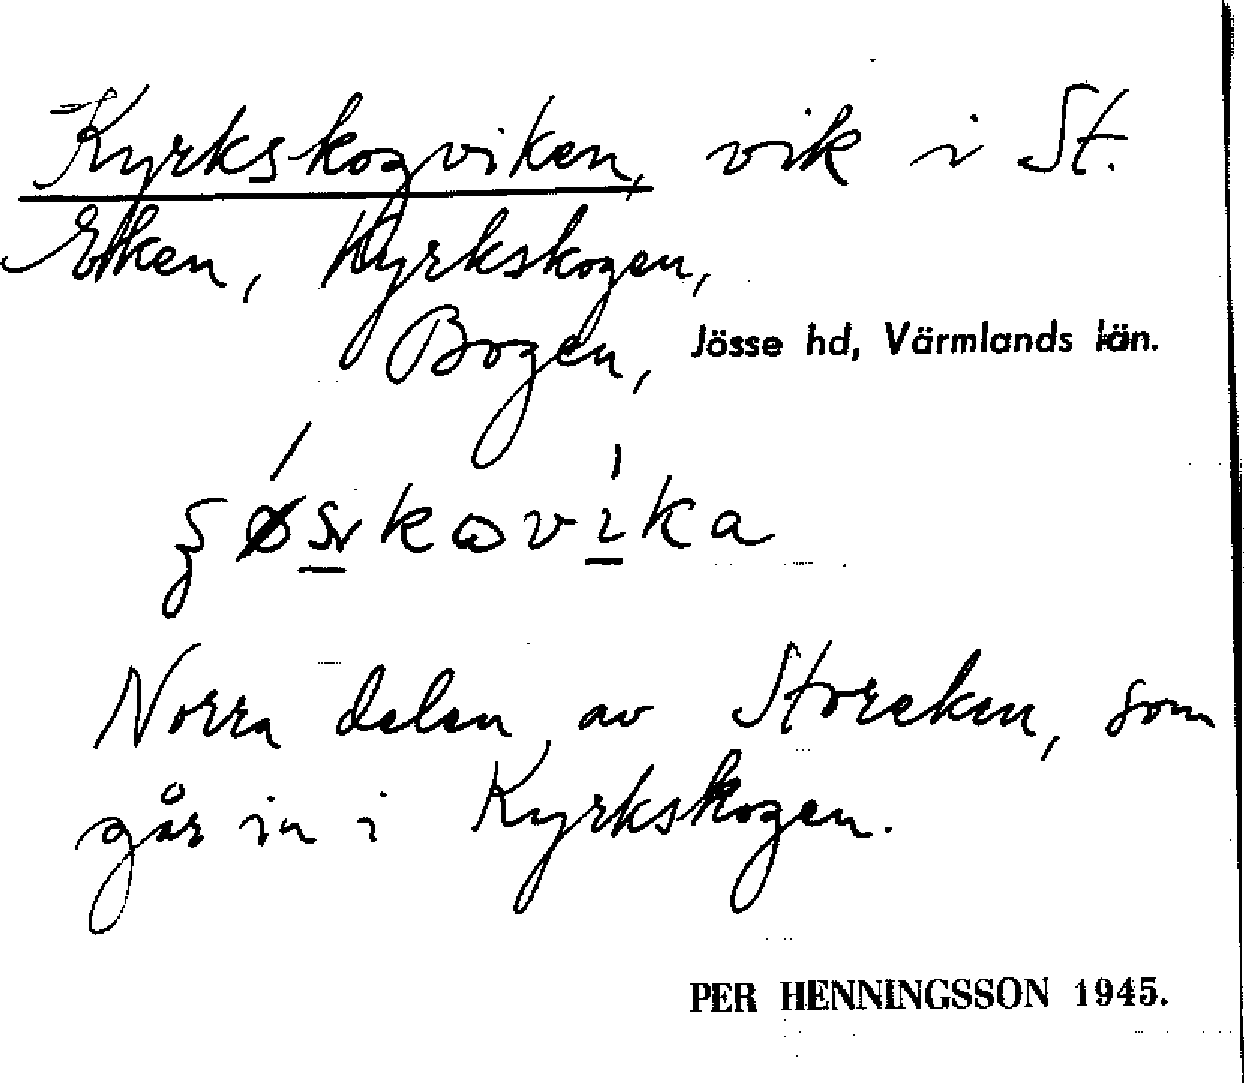 Kyrkskogviken, vik i St.
Eken, Kyrkskogen,
Bogen, Jösse hd, Värmlands län.
Norra delen av Storeken, som
går in i Kyrkskogen.
PER HENNINGSSON 1945.